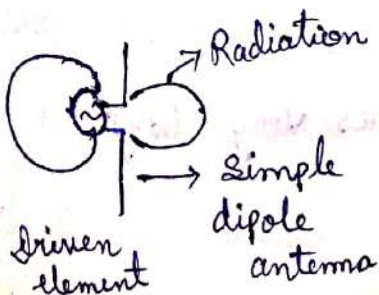 Radiation
Simple
dipole
antenna
Driven
element